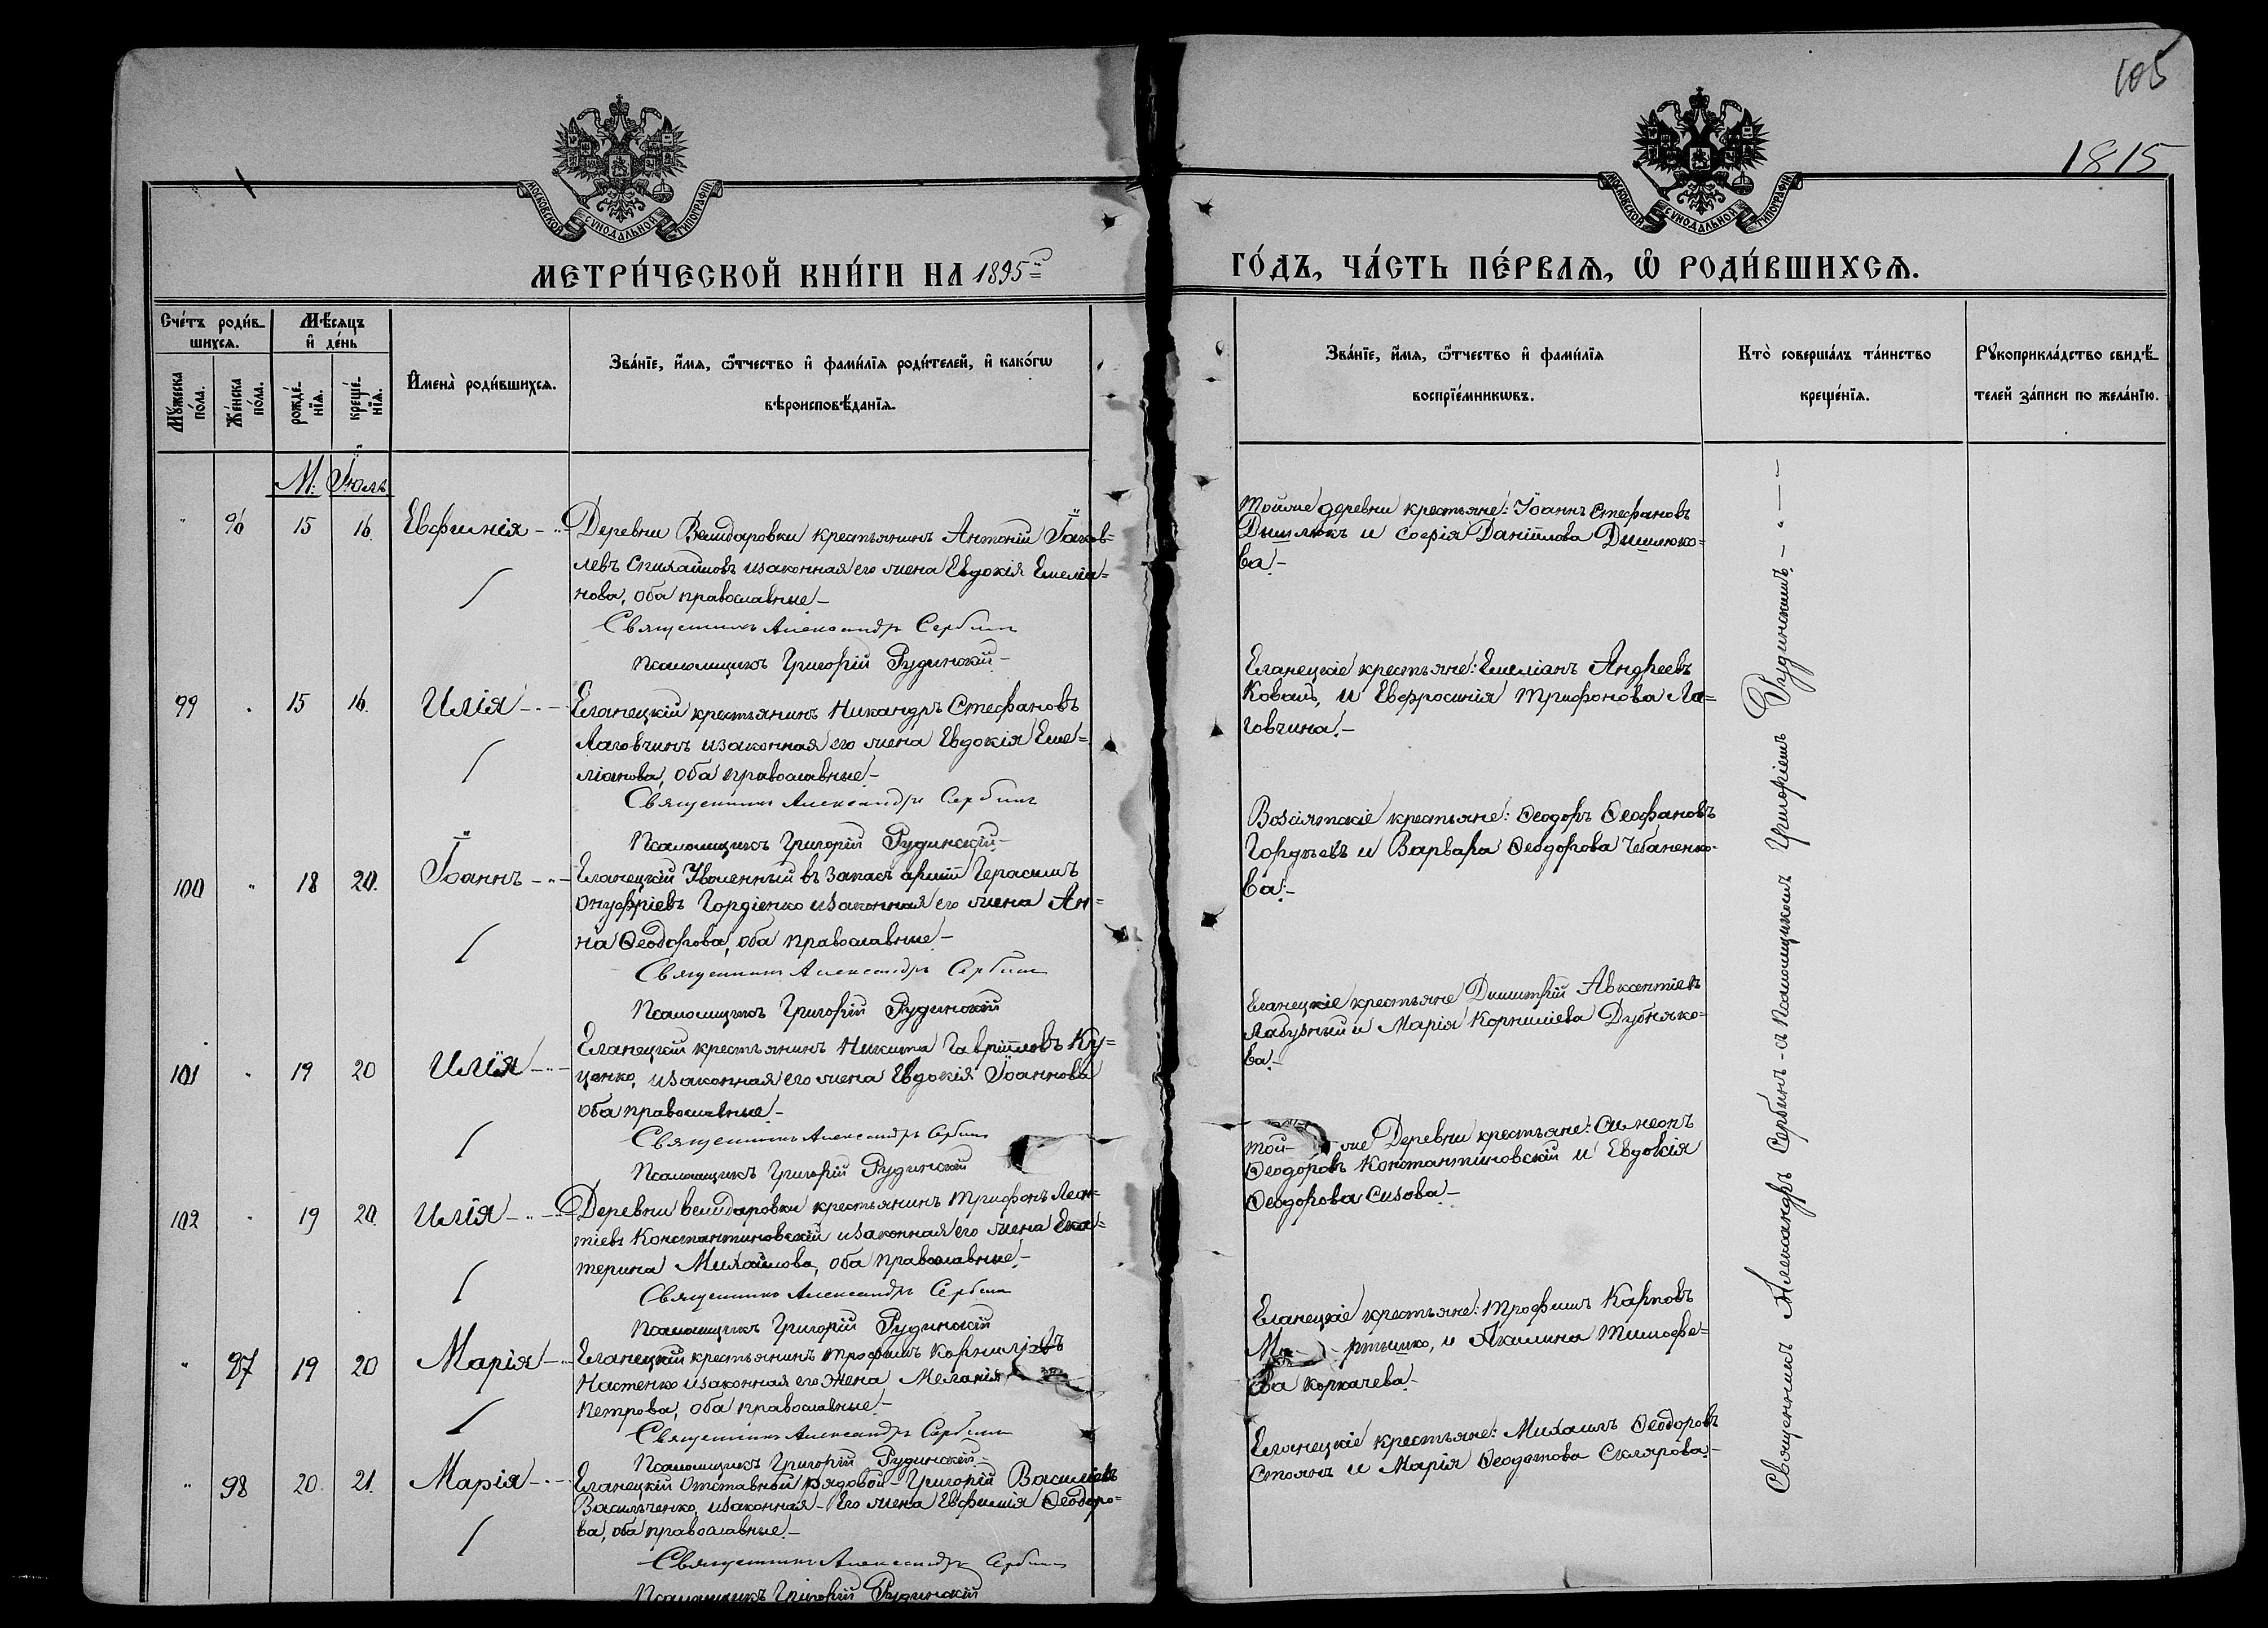 105
1815
МОСКОВСКОЙ СѴНОДАЛЬНОЙ ТИПОГРАФІИ
МОСКОВСКОЙ СѴНОДАЛЬНОЙ ТИПОГРАФІИ
МЕТРИ́ЧЕСКОЙ КНИ́ГИ НА 1895й
ГО́ДЪ, ЧА́СТЬ ПЕ́РВАѦ, Ѡ҆ РОДИ́ВШИХСѦ.
Сче́тъ роди́в-
шихсѧ.
Мꙋ́жеска по́ла.
Же́нска по́ла.
Мѣ́сѧцъ
и҆ де́нь
рожде́-нїѧ.
креще́-нїѧ.
И҆мена̀ роди́вшихсѧ.
Зва́нїе, и҆́мѧ, ѻ҆́тчество и҆ фами́лїѧ роди́телей, и҆ како́гѡ
вѣроисповѣ́данїѧ.
Зва́нїе, и҆́мѧ, ѻ҆́тчество и҆ фами́лїѧ
воспрїе́мникѡвъ.
Кто̀ соверша́лъ та́инство
креще́нїѧ.
Рꙋкоприкла́дство свидѣ́-
телей за́писи по жела́нїю.
М. Іюль
" 96 15 16. Евфимія
Деревни крестьянинъ Антоній Іаков=
левъ и законная его жена Евдокія Емеліа=
нова, оба православные
Священникъ Александръ Сербинъ
Псаломщикъ Григорій Рудинскій
Тойже деревни крестьяне: Іоаннъ Стефановъ
Дышлюкъ и Софія Даніилова Дышлюко=
ва
99 " 15 16. Илія
Еланецкій крестьянинъ Никандръ Стефановъ
Лаговчинъ и законная его жена Евдокія Еме=
ліанова, оба православные
Священникъ Александръ Сербинъ
Псаломщикъ Григорій Рудинскій
Еланецкіе крестьяне: Емеліанъ Андреевъ
Коваль, и Евфросинія Трифонова Ла=
говчина
100 " 18 20. Іоаннъ
Еланецкій Уволенный въ запасъ арміи Герасимъ
Онуфріевъ Гордіенко и законная его жена Ан=
на Ѳеодорова, оба православные
Священникъ Александръ Сербинъ
Псаломщикъ Григорій Рудинскій
Возсіятскіе крестьяне: Ѳеодоръ Ѳеофановъ
Гордѣевъ и Варвара Ѳеодорова Чебаненко=
ва
101 " 19 20 Илія
Еланецкій крестьянинъ Никита Гавріиловъ Ку=
ценко, и законная его жена Евдокія Іоаннова
оба православные
Священникъ Александръ Сербинъ
Псаломщикъ Григорій Рудинскій
Еланецкіе крестьяне Димитрій Авксентіевъ
Лабузный и Марія Корниліева Дубняко=
ва
102 " 19 20. Илія
Деревни крестьянинъ Трифонъ Леон=
тіевъ Константиновскій и законная его жена Ека=
терина Михайлова, оба православные
Священникъ Александръ Сербинъ
Псаломщикъ Григорій Рудинскій
той- же Деревни крестьяне: Симеонъ
Ѳеодоровъ Константиновскій и Евдокія
Ѳеодорова Сизова
" 97 19 20 Марія
Еланецкій крестьянинъ Трофимъ Корниліевъ
Настенко и законная его жена Меланія
Петрова, оба православные
Священникъ Александръ Сербинъ
Псаломщикъ Григорій Рудинскій
Еланецкіе крестьяне: Трофимъ Карповъ
и Акилина Тимофе=
ева Коркачева
" 98 20. 21. Марія
Еланецкій Отставный рядовой Григорій Василіевъ
Васильченко, и законная Его жена Евфимія Ѳеодоро=
ва, оба православные
Священникъ Александръ Сербинъ
Псаломщикъ Григорій Рудинскій
Еланецкіе крестьяне: Михаилъ Ѳеодоровъ
Стоянъ и Марія Ѳеодотова Склярова
Священникъ Александръ Сербинъ съ Псаломщикомъ Григоріемъ Рудинскимъ